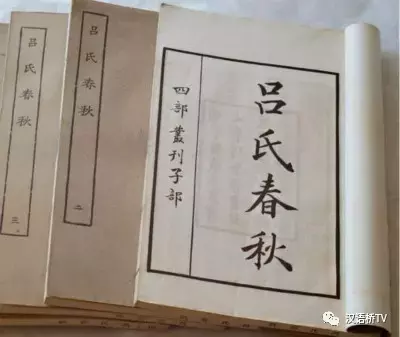 吕氏春秋
四部叢刊子部
吕氏春秋
二
吕氏春秋
三
汉语桥TV